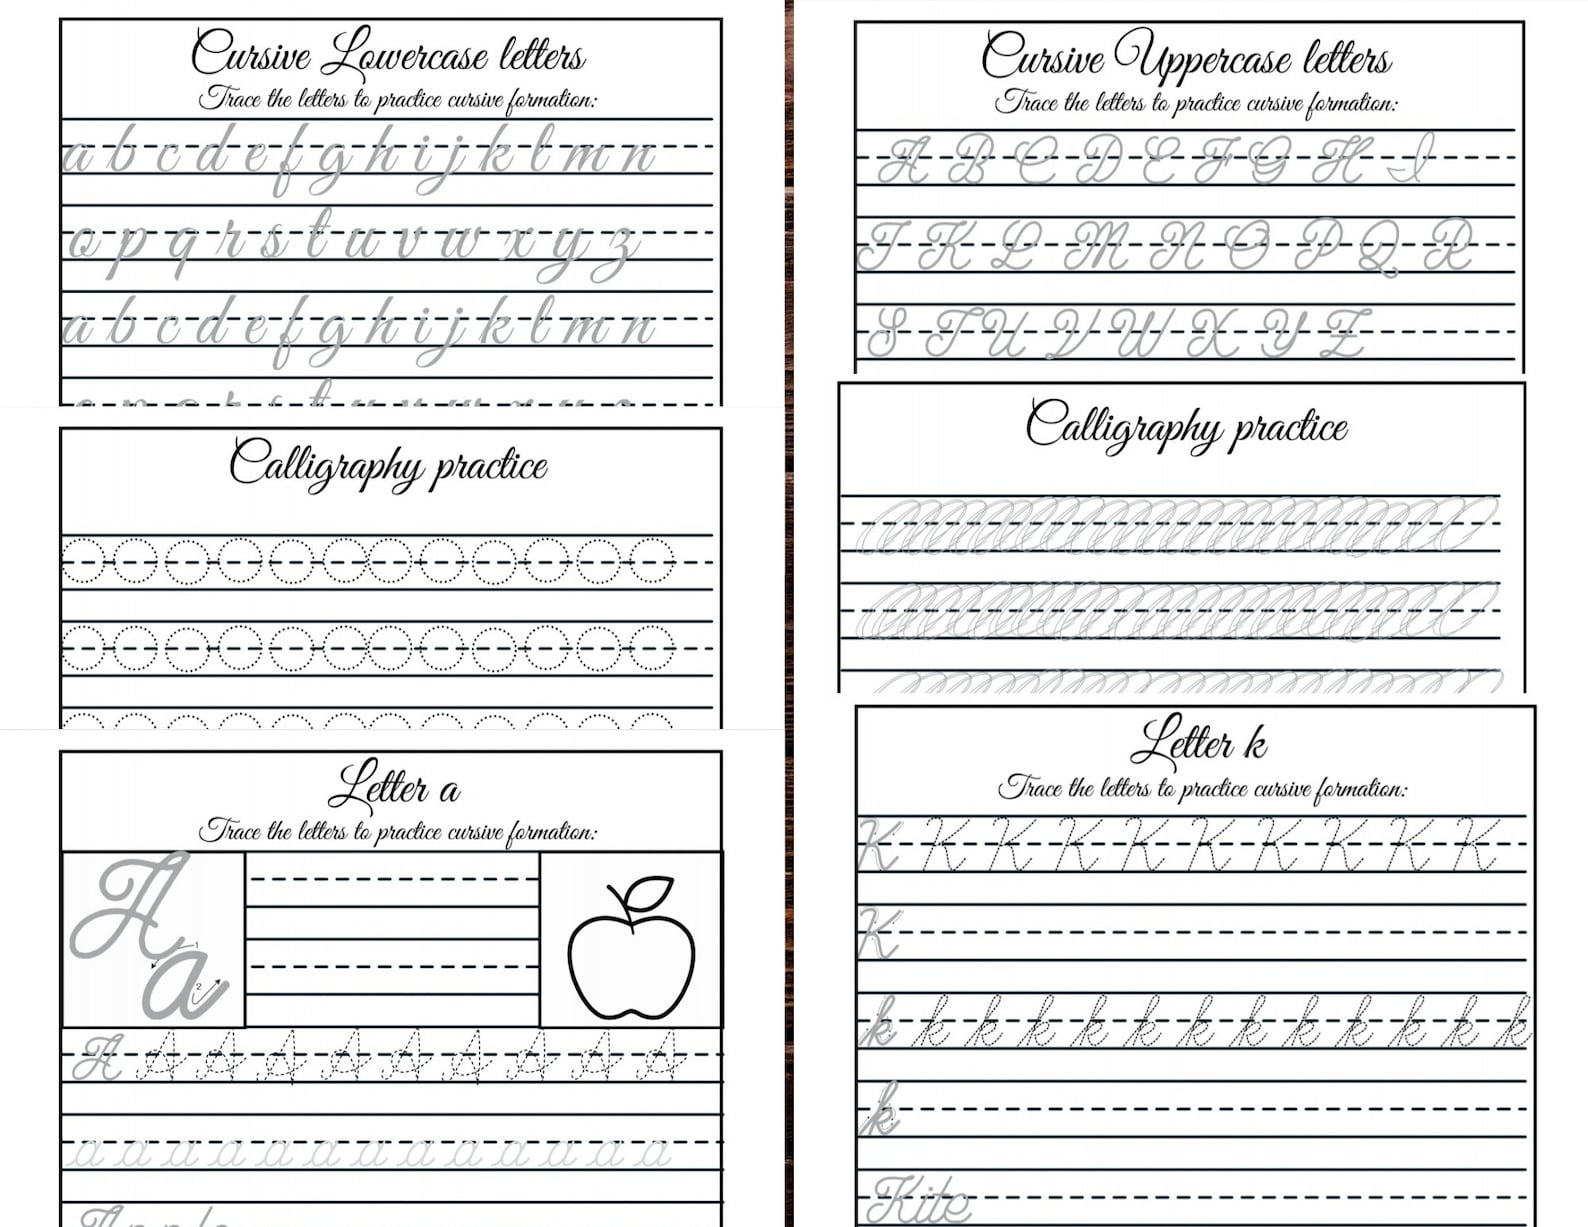 Cursive Lowercase letters
Trace the letters to practice cursive formation:
a b c d e f g h i j k l m n
o p q r s t u v w x y z
a b c d e f g h i j k l m n
Calligraphy practice
Letter a
Trace the letters to practice cursive formation:
A
a
1
2
A A A A A A A A A A
a a a a a a a a a a a a a
Apple
Cursive Uppercase letters
Trace the letters to practice cursive formation:
A B C D E F G H I
J K L M N O P Q R
S T U V W X Y Z
Calligraphy practice
Letter k
Trace the letters to practice cursive formation:
K K K K K K K K K K
K
k k k k k k k k k k k k k
k
Kite